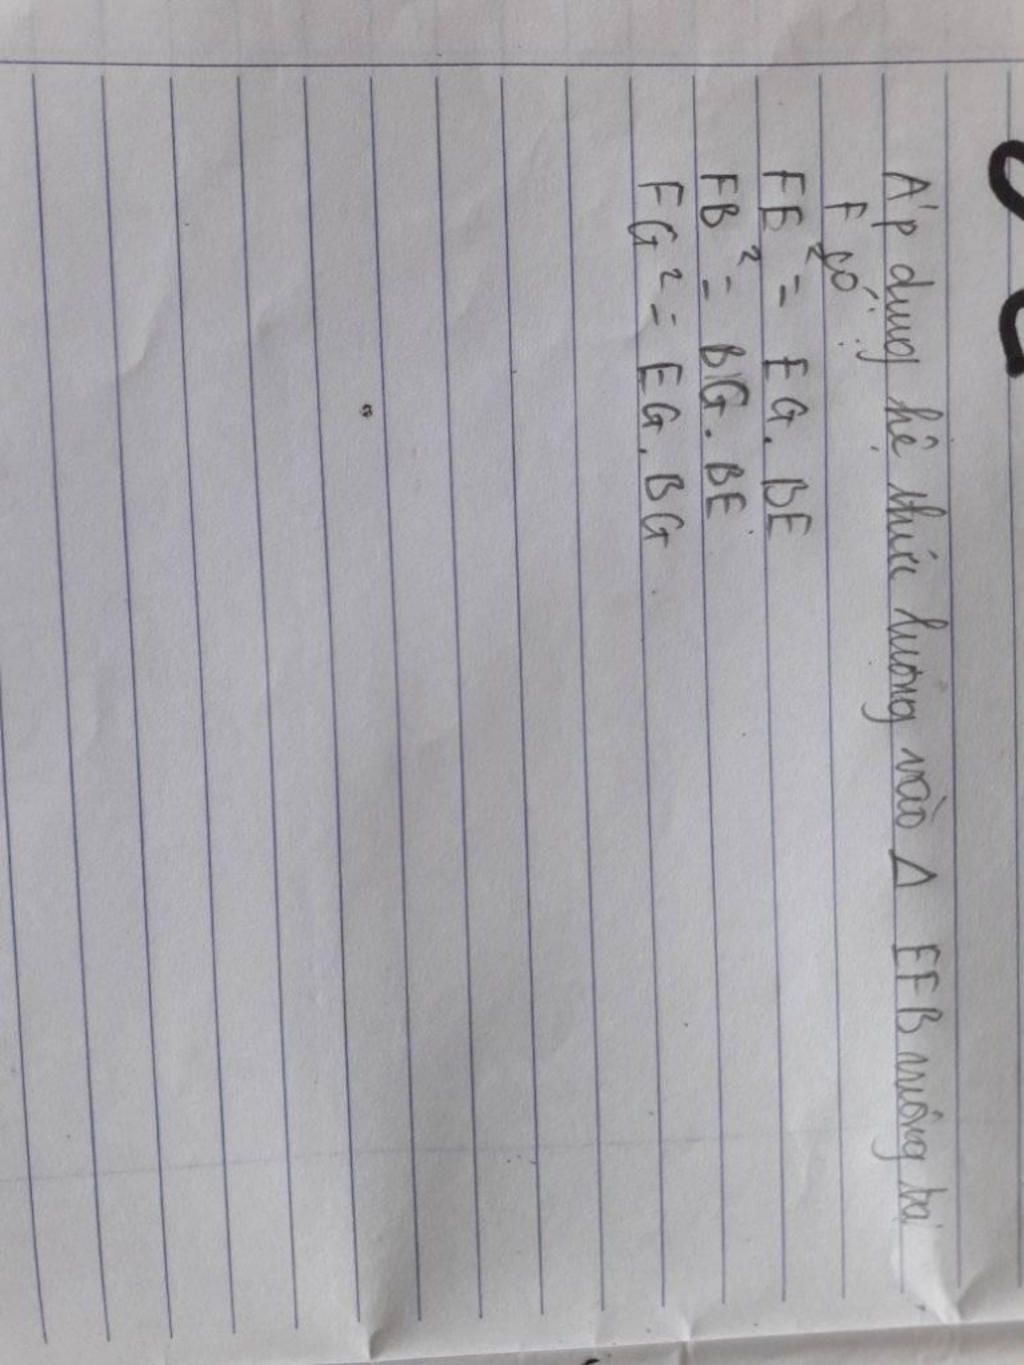 Áp dụng hệ thức lượng vào Δ EFB vuông tại
F có:
FE² = EG. BE
FB² = BG. BE
FG² = EG. BG